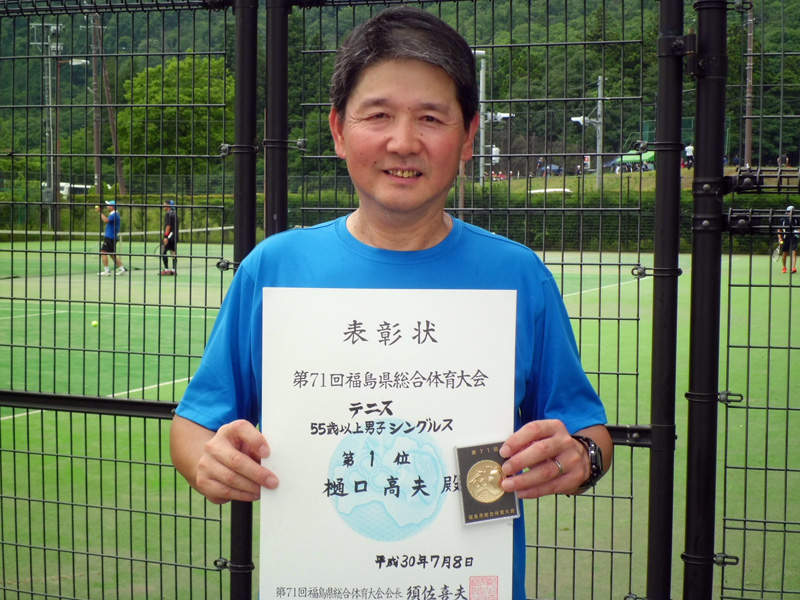 表彰状
第71回福島県総合体育大会
テニス
55歳以上男子シングルス
第1位
樋口高夫殿
平成30年7月8日
第71回福島県総合体育大会会長 須佐喜夫
第71回
福島県総合体育大会